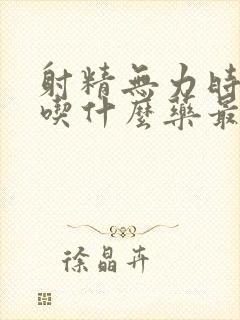 射精無力時
喫什麼藥最
徐晶卉